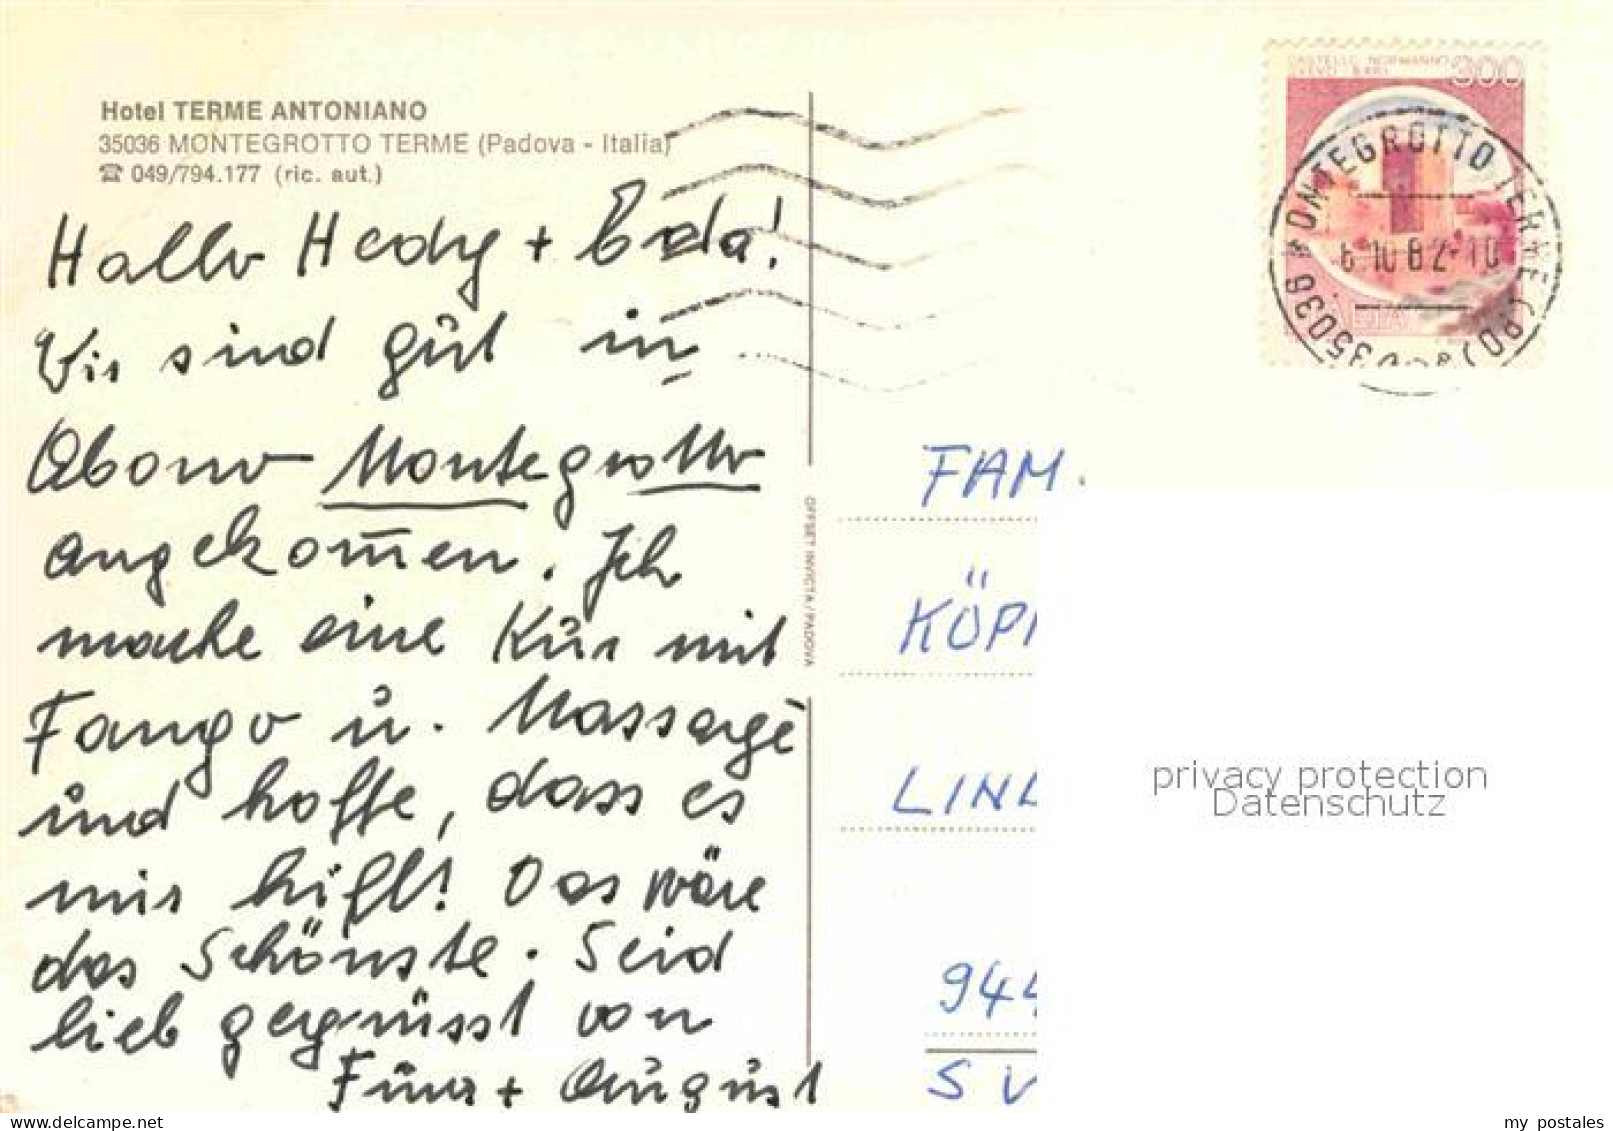 Hotel TERME ANTONIANO
35036 MONTEGROTTO TERME (Padova - Italia)
☎ 049/794.177 (ric. aut.)
Hallo Hedy + Eda!
Wir sind gut in
Abano Montegrotto
angekom̅en. Ich
mache eine Kur mit
Fango u. Massage
und hoffe, dass es
mir hilft! Das wäre
das Schönste. Seid
lieb gegrüsst von
+ August
OFFSET INVICTA/PADOVA
CASTELLO NORMANNO
SVEVO BARI
300
35036 MONTEGROTTO TERME (PD)
6.10.82-10
FAM.
KÖP
LIN
944
SV
privacy protection
Datenschutz
www.delcampe.net
my_postales